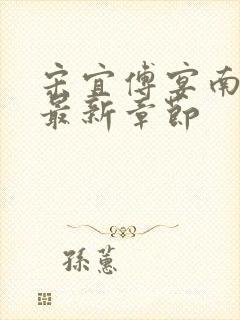 宋宜傅宴南
最新章節
孫蕙